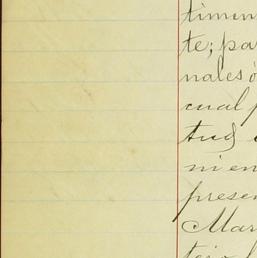 timien
te; pa
nales ó
cual p
tud
ni en
presen
Mar